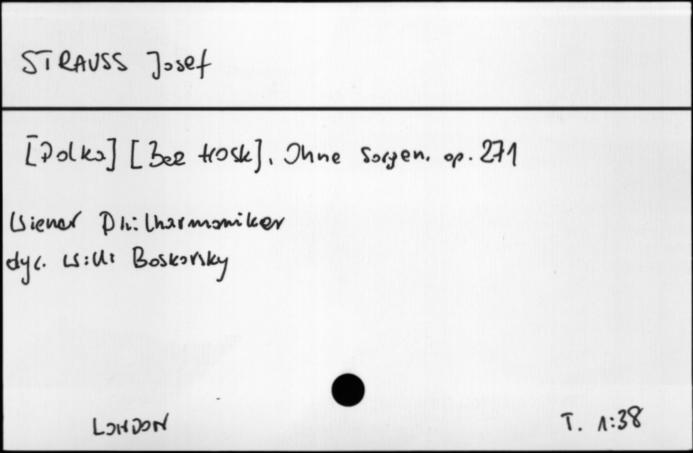 STRAUSS Josef
[Polka] [Bez trosk]. Ohne Sorgen. op. 271
Wiener Philharmoniker
dyr. Willi Boskovsky
LONDON
T. 1:38